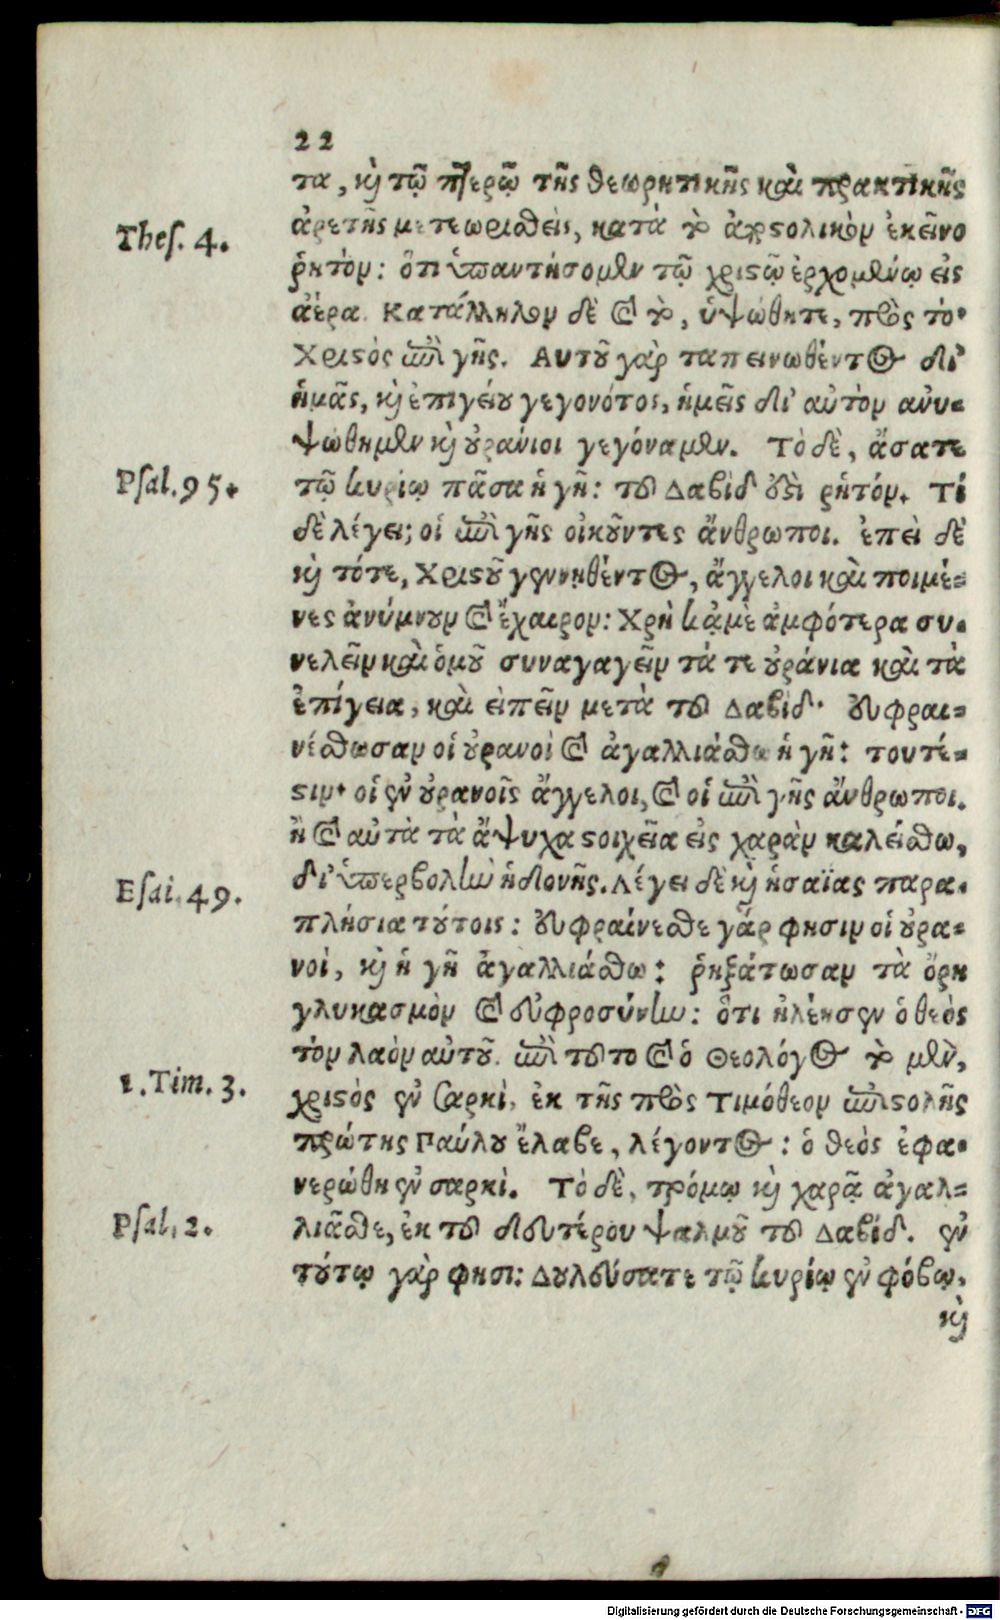 22
τα, καὶ τῷ πτερῷ τῆς θεωρητικῆς καὶ πρακτικῆς
Thes. 4.
ἀρετῆς μετεωρισθεὶς, κατὰ τὸ ἀποστολικὸν ἐκεῖνο
ῥητὸν: ὅτι ὑπαντήσομεν τῷ χριστῷ ἐρχομένῳ εἰς
ἀέρα. Κατάλληλον δὲ καὶ τὸ, ὑψώθητε, πρὸς τὸ·
Χριστὸς ἐπὶ γῆς. Αυτοῦ γὰρ ταπεινωθέντος δι'
ἡμᾶς, καὶ ἐπιγείου γεγονότος, ἡμεῖς δι' αὐτὸν ἀνυ-
ψώθημεν καὶ οὐράνιοι γεγόναμεν. Τὸ δὲ, ᾄσατε
Psal. 95.
τῷ κυρίῳ πᾶσα ἡ γῆ: τοῦ Δαβὶδ ἐστὶ ῥητόν. Τί
δὲ λέγει; οἱ ἐπὶ γῆς οἰκοῦντες ἄνθρωποι. ἐπεὶ δὲ
καὶ τότε, Χριστοῦ γεννηθέντος, ἄγγελοι καὶ ποιμέ-
νες ἀνύμνουν καὶ ἔχαιρον: Χρὴ κᾀμὲ ἀμφότερα συ-
νελεῖν καὶ ὁμοῦ συναγαγεῖν τά τε οὐράνια καὶ τὰ
ἐπίγεια, καὶ εἰπεῖν μετὰ τοῦ Δαβίδ· Ευφραι-
νέσθωσαν οἱ οὐρανοὶ καὶ ἀγαλλιάσθω ἡ γῆ: τουτέ-
στιν· οἱ ἐν οὐρανοῖς ἄγγελοι, καὶ οἱ ἐπὶ γῆς ἄνθρωποι.
ἢ καὶ αὐτὰ τὰ ἄψυχα στοιχεῖα εἰς χαρὰν καλείσθω,
Esai. 49.
δι' ὑπερβολὴν ἡδονῆς. Λέγει δὲ καὶ ἡσαΐας παρα-
πλήσια τούτοις: Ευφραίνεσθε γάρ φησιν οἱ οὐρα-
νοὶ, καὶ ἡ γῆ ἀγαλλιάσθω: ῥηξάτωσαν τὰ ὄρη
γλυκασμὸν καὶ εὐφροσύνην: ὅτι ἠλέησεν ὁ θεὸς
τὸν λαὸν αὐτοῦ. ἐπὶ τοῦτο καὶ ὁ Θεολόγος τὸ μὲν,
1. Tim. 3.
χριστὸς ἐν σαρκὶ, ἐκ τῆς πρὸς Τιμόθεον ἐπιστολῆς
πρώτης Παύλου ἔλαβε, λέγοντος: ὁ θεὸς ἐφα-
νερώθη ἐν σαρκὶ. Τὸ δὲ, τρόμῳ καὶ χαρᾷ ἀγαλ-
Psal. 2.
λιᾶσθε, ἐκ τοῦ δευτέρου ψαλμοῦ τοῦ Δαβίδ. ἐν
τούτῳ γάρ φησι: Δουλεύσατε τῷ κυρίῳ ἐν φόβῳ,
καὶ
Digitalisierung gefördert durch die Deutsche Forschungsgemeinschaft - DFG